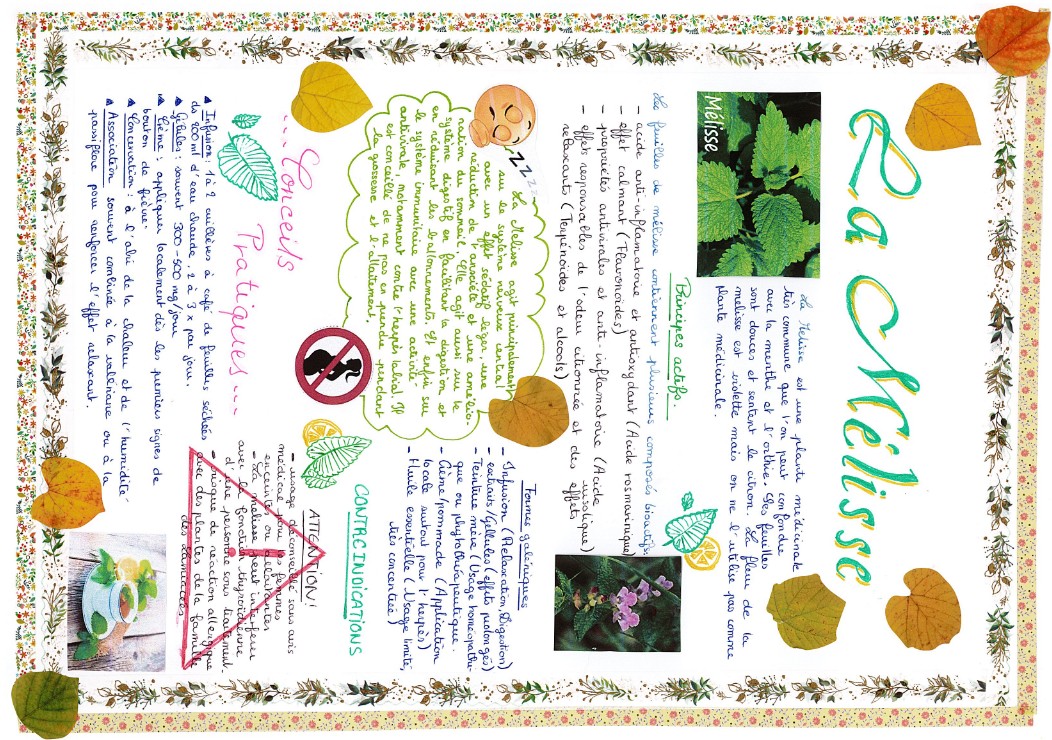 La Mélisse
La Mélisse est une plante médicinale
très commune que l'on peut confondre
avec la menthe et l'orthie. Les feuilles
sont douces et sentent le citron. La fleur de la
melisse est violette mais on ne l'utilise pas comme
plante médicinale.
Mélisse
Principes actifs.
Les feuilles de mélisse contiennent plusieurs composés bioactifs
- acide anti-inflammatoire et antioxydant (Acide rosmarinique)
- effet calmant (Flavonoïdes)
- propriétés antivirales et anti-inflammatoire (Acide
ursolique)
- effets responsables de l'odeur citronnée et des effets
relaxants (Terpénoïdes et alcools)
zzzz
La Melisse agit principalement
sur le système nerveux central
avec un effet sédatif léger, une
réduction de l'anxiété et une amélio-
ration du sommeil. Elle agit aussi sur le
système digestif en facilitant la digestion et
en réduisant les ballonnements. Et enfin sur
le système immunitaire avec une activité
antivirale, notamment contre l'herpès labial. Il
est conseillé de ne pas en prendre pendant
la grossesse et l'allaitement.
Formes galéniques
- Infusion (Relaxation, Digestion)
- extraits/Gellules (effets prolongés)
- Teinture mère (Usage homéopathi-
que ou phytothérapeutique.
- Crème/pommade (Application
locale surtout pour l'herpès)
- Huile essentielle (Usage limité,
très concentrée)
CONTRE INDICATIONS
ATTENTION!
- usage déconseillé sans avis
médical pour les femmes
enceintes ou allaitantes
- La mélisse peut interférer
avec la fonction thyroïdienne
d'une personne sous traitement
- risque de réaction allergique
avec des plantes de la famille
des lamiacées
!
...Conceils
Pratiques...
Infusion: 1 à 2 cuillères à café de feuilles séchées
ds 200 ml d'eau chaude. 2 à 3 x par jour.
Gélules: souvent 300-500 mg/jour
Crème: appliquer localement dès les premiers signes de
bouton de fièvre.
Conservation: à l'abri de la chaleur et de l'humidité
Association souvent combinée à la valériane ou à la
passiflore pour renforcer l'effet relaxant.